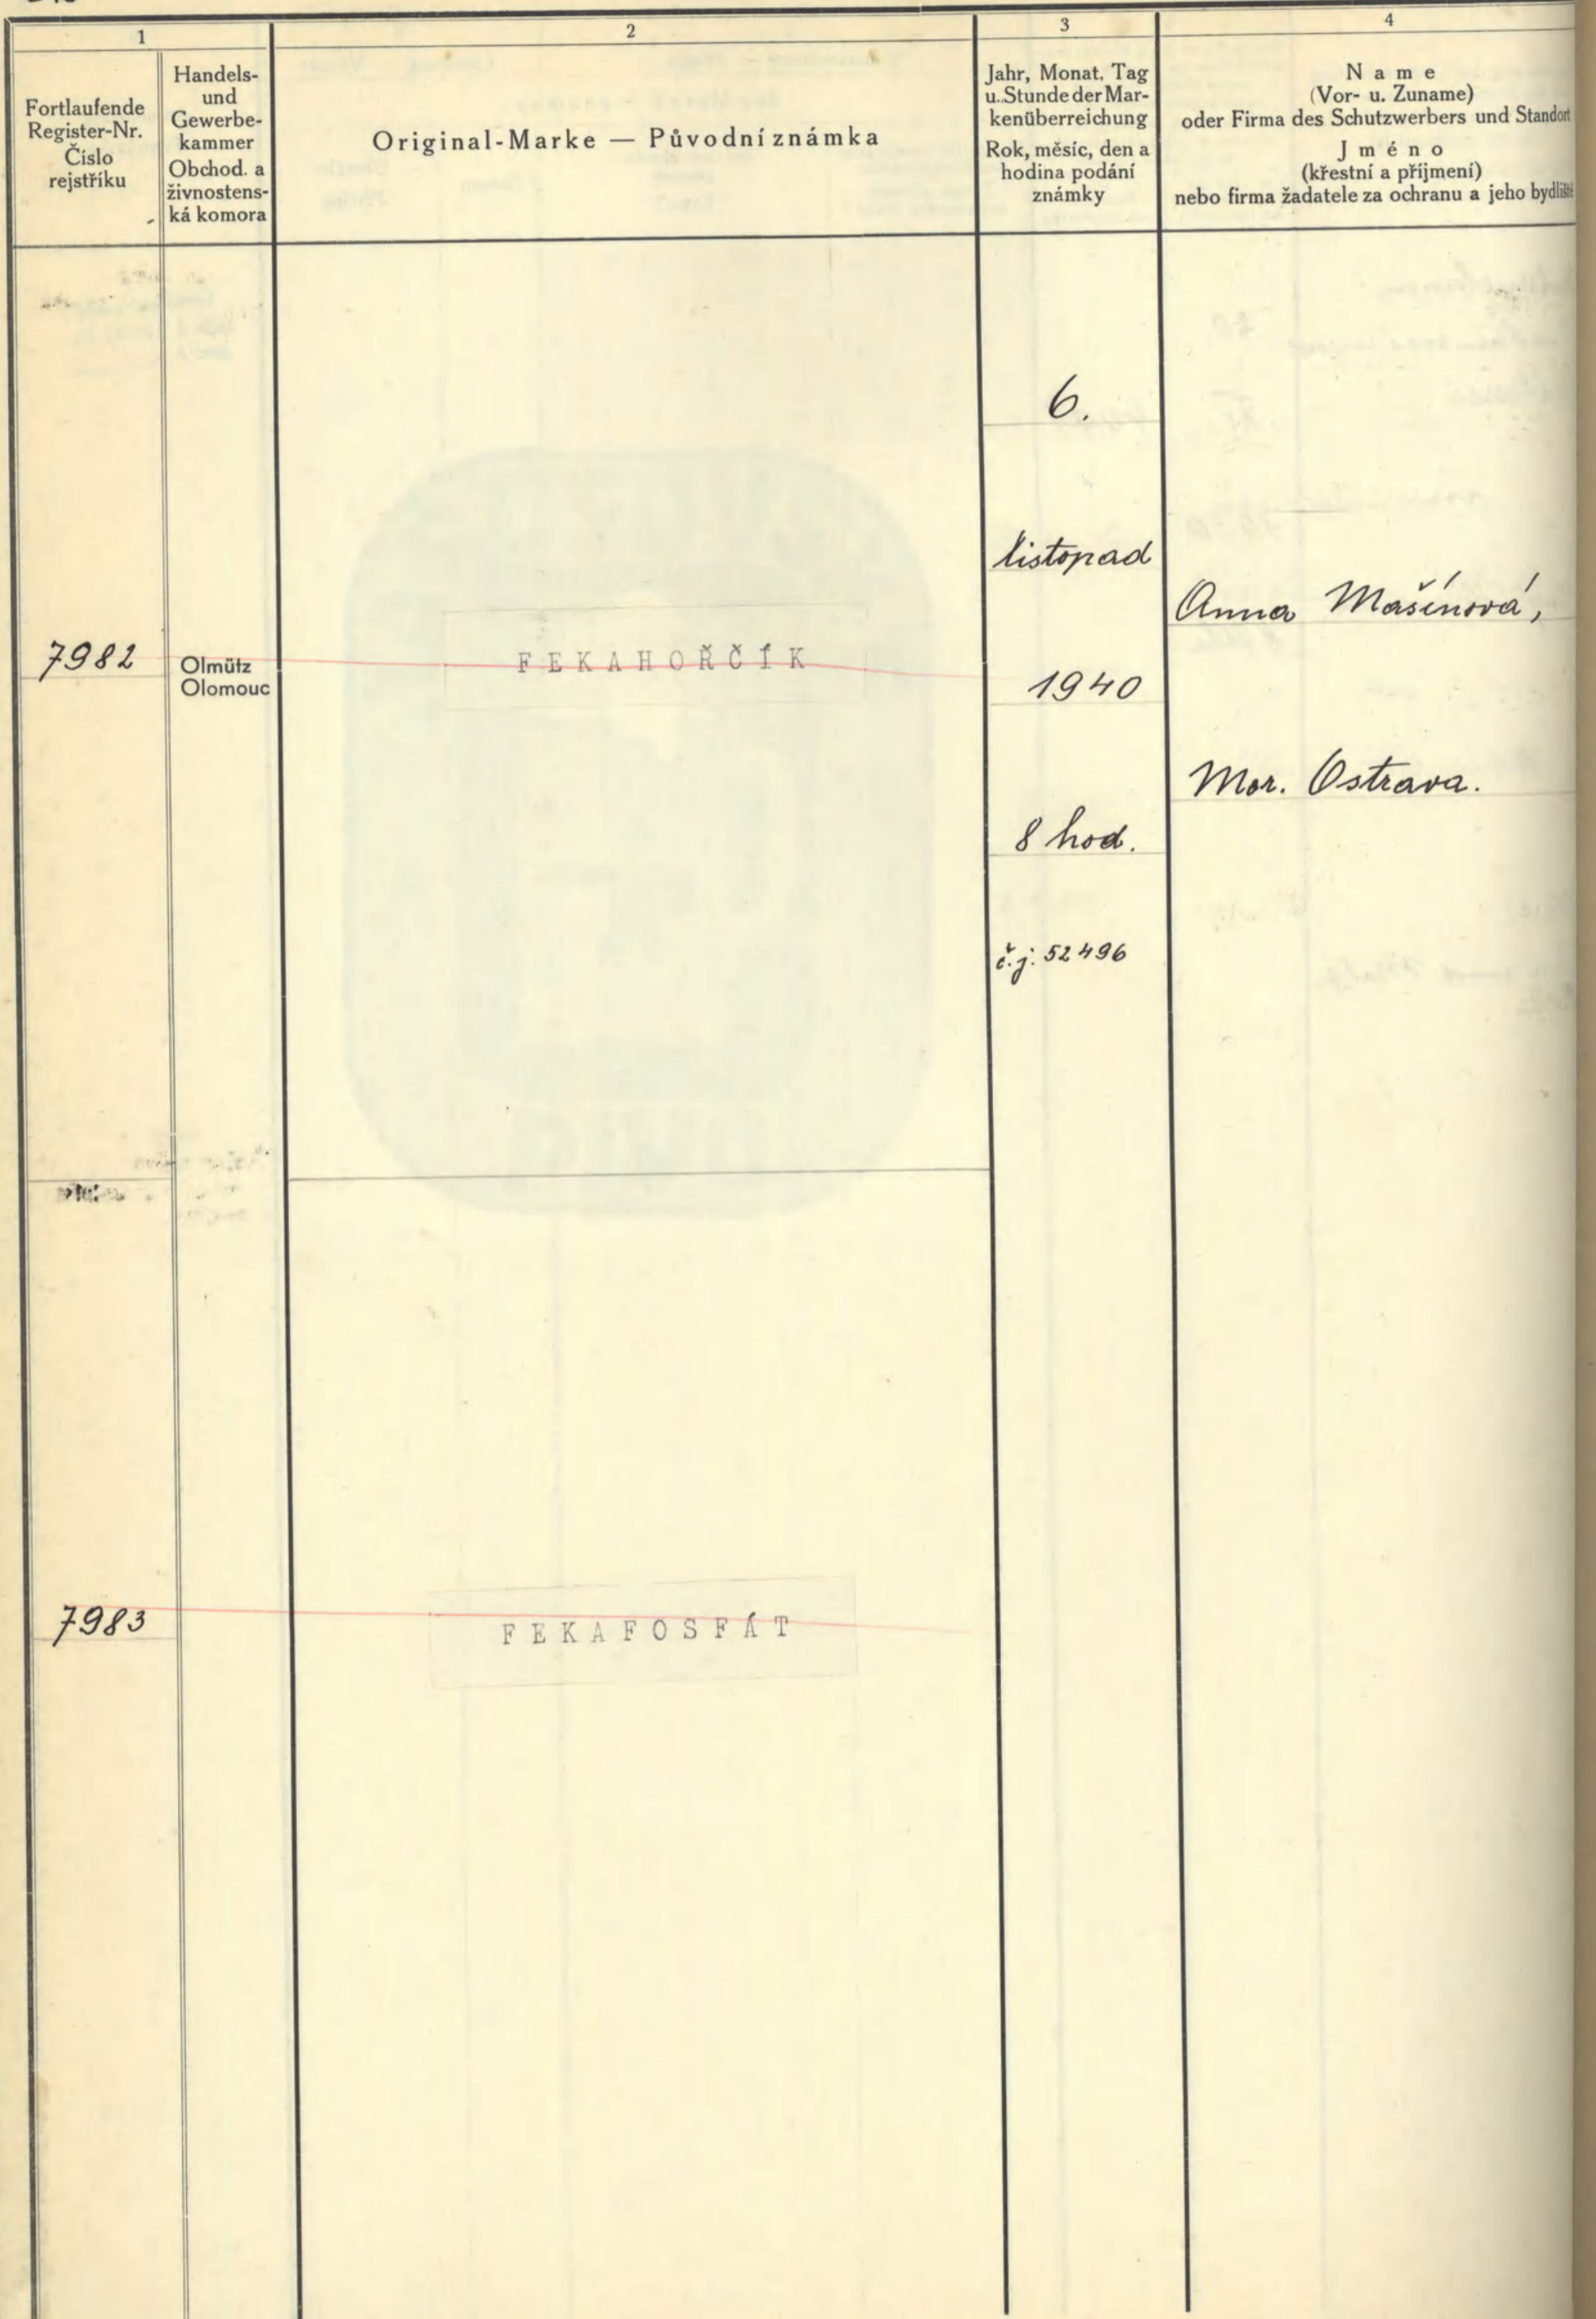 1
2
3
4
Fortlaufende
Register-Nr.
Číslo
rejstříku
Handels-
und
Gewerbe-
kammer
Obchod. a
živnostens-
ká komora
Original-Marke — Původní známka
Jahr, Monat, Tag
u. Stunde der Mar-
kenüberreichung
Rok, měsíc, den a
hodina podání
známky
Name
(Vor- u. Zuname)
oder Firma des Schutzwerbers und Standort
Jméno
(křestní a příjmení)
nebo firma žadatele za ochranu a jeho bydliště
7982
Olmütz
Olomouc
FEKAHOŘČÍK
6.
listopad
1940
8 hod.
č.j. 52496
Anna Mašínová,
Mor. Ostrava.
7983
FEKAFOSFÁT